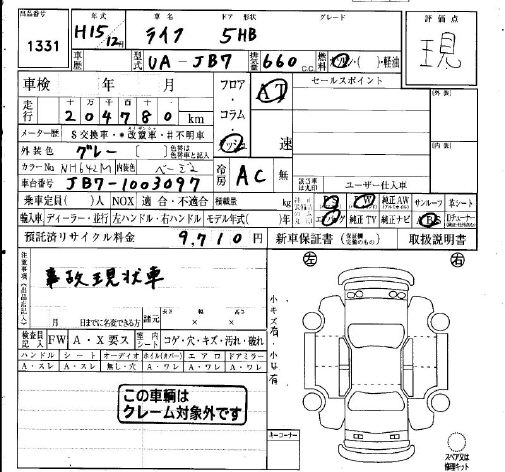 出品番号 1331
年式 H15/12月 車名 ライフ ドア形状 5HB グレード
評価点 現
車歴 型式 UA-JB7 排気量 660 C.C. 燃料 ・軽油
車検 年 月
フロア・コラム・
AT
速
セールスポイント
走行 十万 万 千 百 十 204780 km
メーター歴 S交換車・*改ざん車・#不明車
外装色 グレー 色替車と記入
カラーNo NH642M 内装色 ベージュ
冷房 AC 無
車台番号 JB7-1003097
ユーザー仕入車
乗車定員( )人 NOX 適合・不適合 積載量 kg
純正AW サンルーフ 革シート
輸入車 ディーラー・並行 左ハンドル・右ハンドル モデル年式( )年
純正TV 純正ナビ
預託済リサイクル料金 9,710円 新車保証書 取扱説明書
注意事項(出品店記入)
事故現状車
月 日までに名変できる方 諸元 長さ 幅 高さ × ×
左 右
小キズ有 小凹有
検査員記入 FW A・X要ス 室内シート コゲ・穴・キズ・汚れ・破れ
ハンドル シート オーディオ ホイル(カバー) エアロ ドアミラー
A・スレ A・スレ 無し・穴 A・ワレ A・ワレ A・ワレ
この車輌は
クレーム対象外です
キーコーナー
スペア又は
修理キット